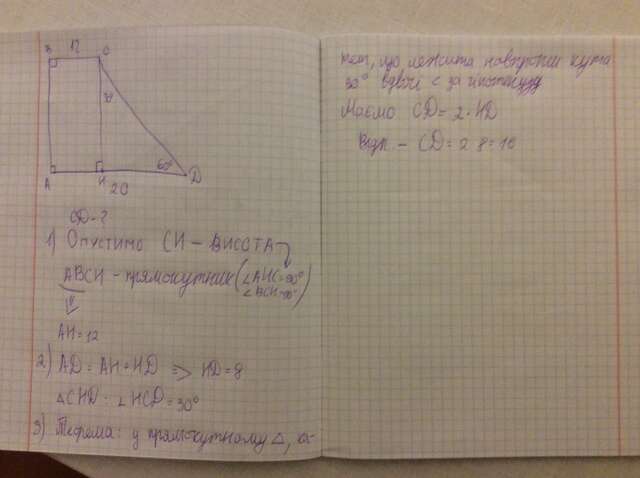 B 12 C
A H 60° D
20
CD - ?
1) Опустимо CH - висота
ABCH - прямокутник (∠AHC=90°
∠BCH=90°)
AH = 12
2) AD = AH + HD => HD = 8
△CHD - ∠HCD = 30°
3) Теорема: у прямокутному △, ка-
тет, що лежить навпроти кута
30° вдвічі < за гіпотенузу
Маємо CD = 2 · HD
Відп - CD = 2 · 8 = 16